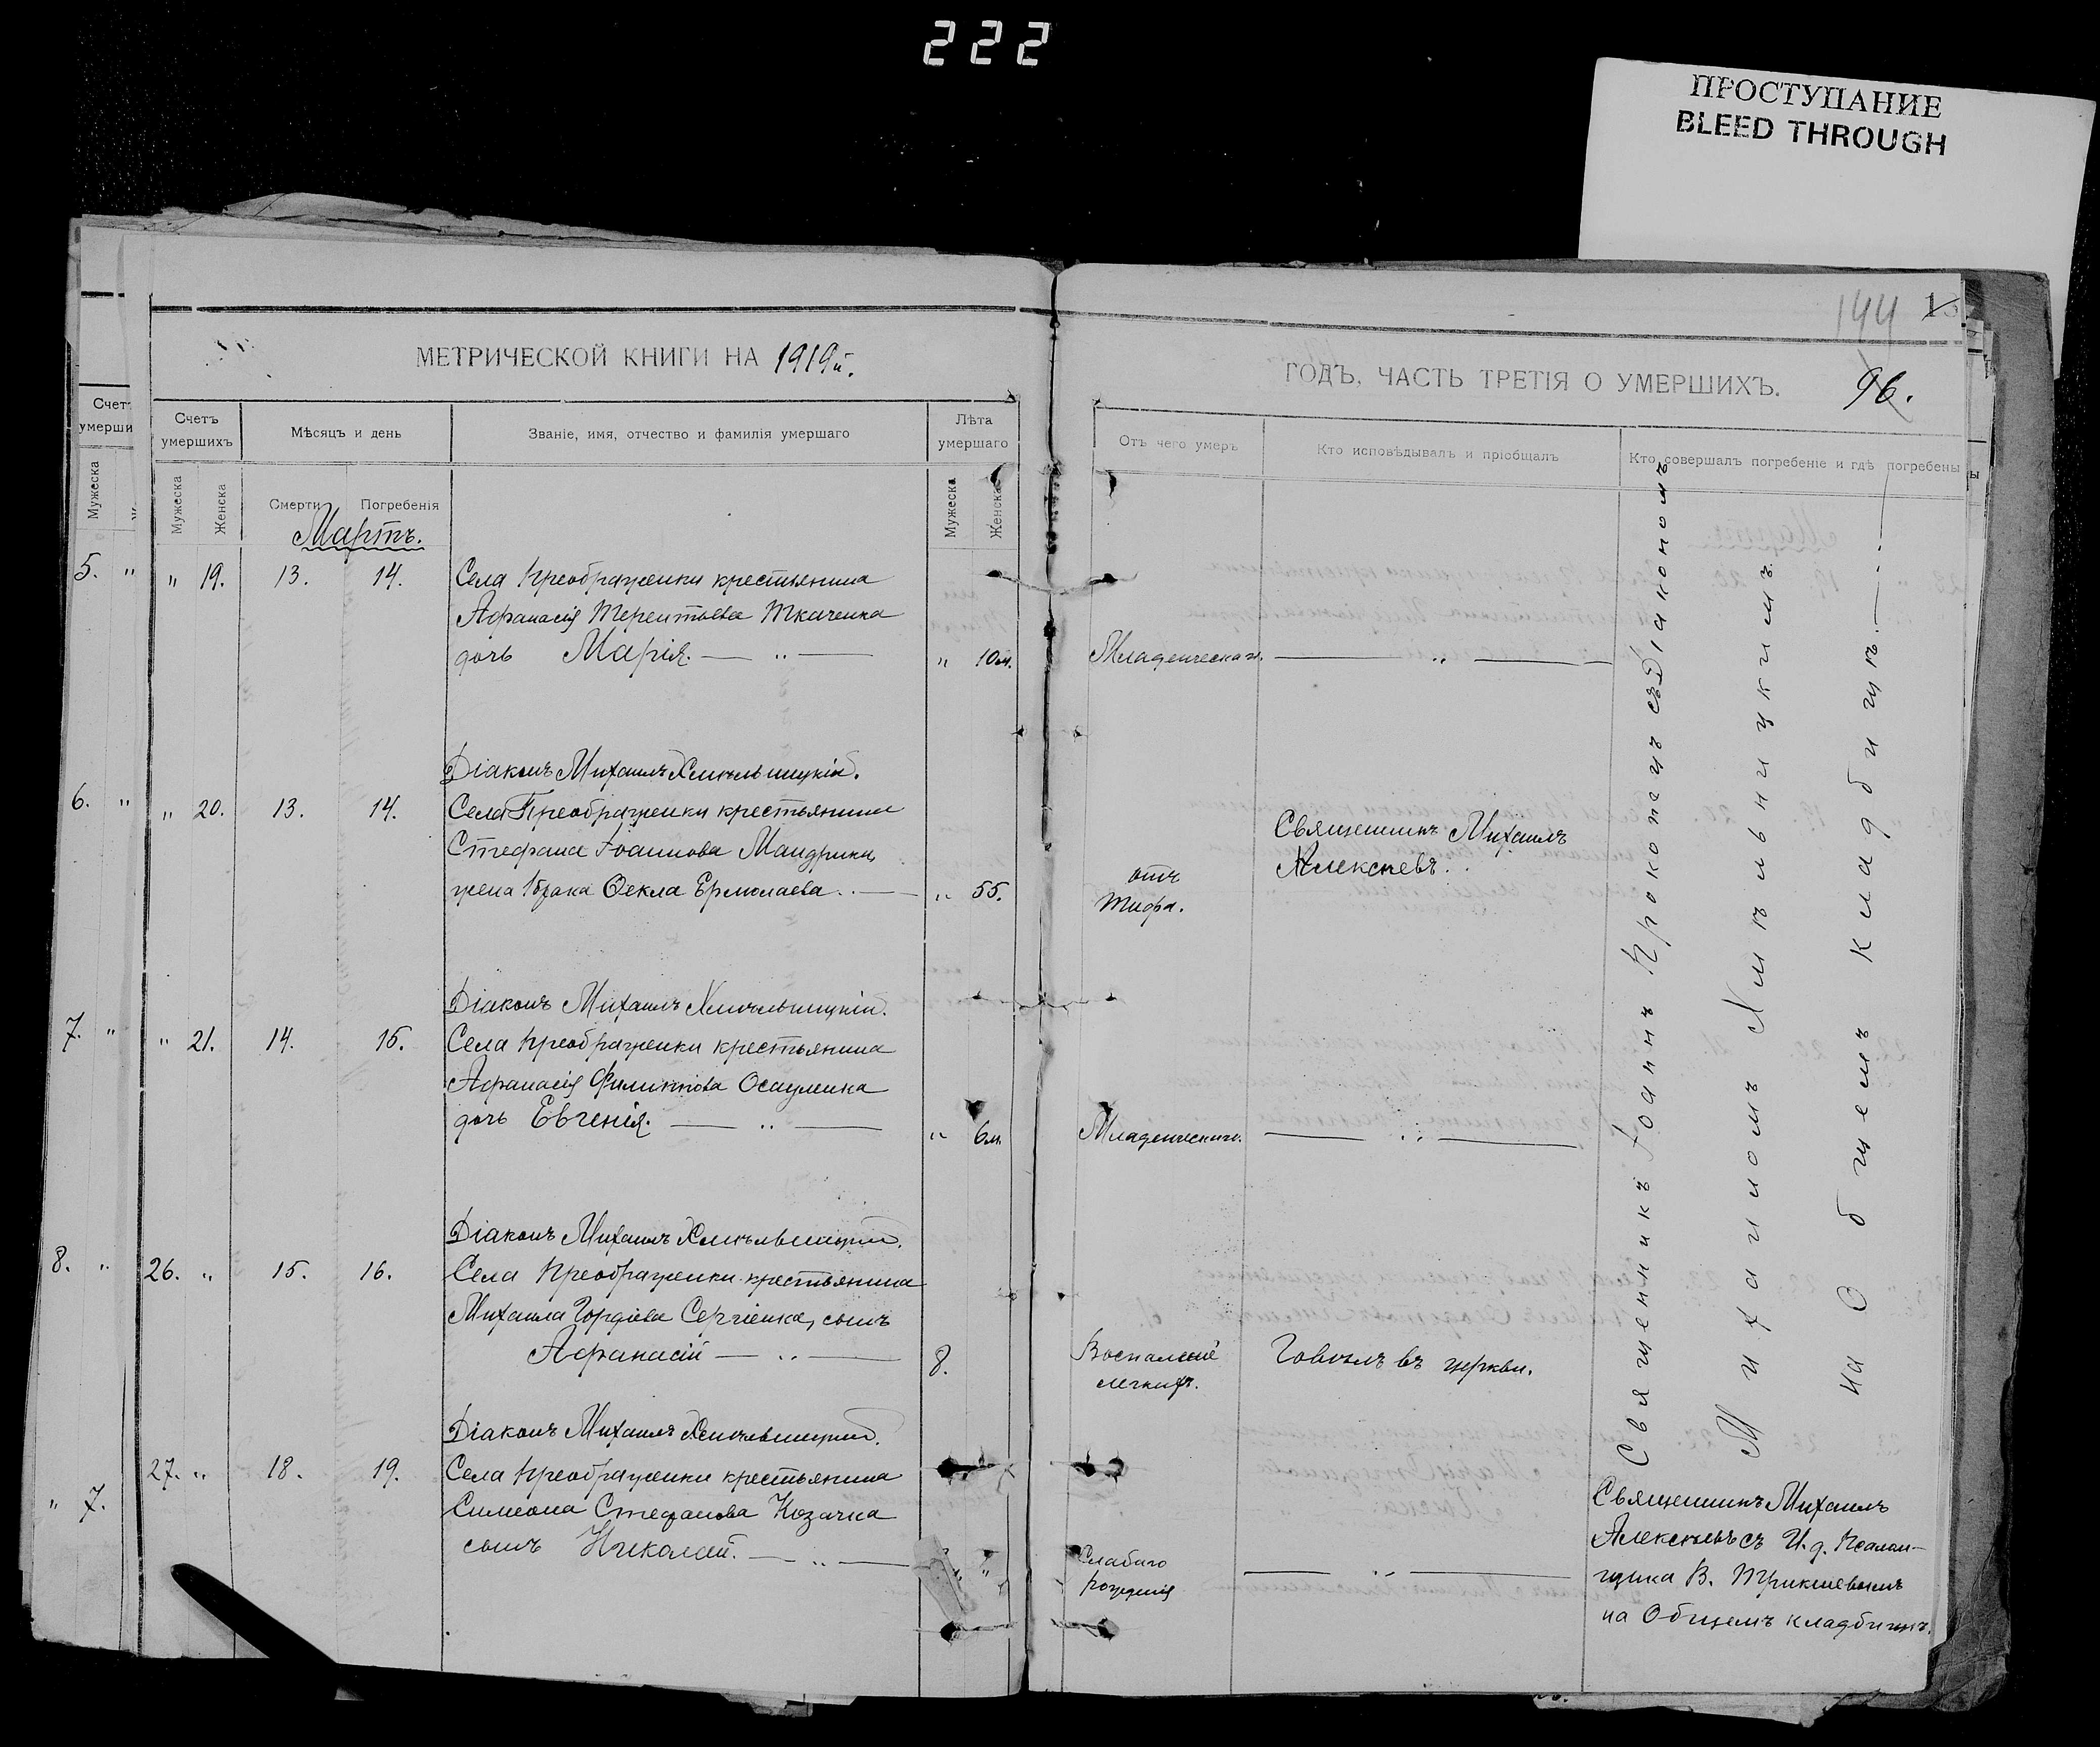 222
ПРОСТУПАНИЕ
BLEED THROUGH
144
96.
МЕТРИЧЕСКОЙ КНИГИ НА 1919й.
ГОДЪ, ЧАСТЬ ТРЕТІЯ О УМЕРШИХЪ.
Счетъ умершихъ
Мѣсяцъ и день
Званіе, имя, отчество и фамилія умершаго
Лѣта умершаго
Отъ чего умеръ
Кто исповѣдывалъ и пріобщалъ
Кто совершалъ погребеніе и гдѣ погребены
Мужеска
Женска
Смерти
Погребенія
Мужеска
Женска
Мартъ.
5. "
" 19. 13. 14. Села Преображенки крестьянина
Афанасія Терентьева Ткаченка
дочь Марія. — " —
" 10м. Младенческаго. — " —
Діаконъ Михаилъ Хмѣльницкій.
6. "
" 20. 13. 14. Села Преображенки крестьянина
Стефана Іоаннова Мандрики
жена 1 брака Ѳекла Ермолаева. —
" 55. отъ
Тифа.
Священникъ Михаилъ
Алексѣевъ.
Діаконъ Михаилъ Хмѣльницкій.
7. "
" 21. 14. 15. Села Преображенки крестьянина
Афанасія Филиппова Осауленка
дочь Евгенія. — " —
" 6м. Младенческаго. — " —
Діаконъ Михаилъ Хмѣльницкій.
8. "
26. " 15. 16. Села Преображенки крестьянина
Михаила Гордіева Сергіенка, сынъ
Афанасій — " —
8. Воспаленіе
легкихъ.
Говѣлъ въ церкви.
Діаконъ Михаилъ Хмѣльницкій.
" 7.
27. " 18. 19. Села Преображенки крестьянина
Симеона Стефанова Козачка
сынъ Николай. — " —
" Слабаго
рожденія — " —
Священникъ Іоаннъ Прокопецъ съ Діакономъ
Михаиломъ Хмѣльницкимъ
на Общемъ кладбищѣ. —
Священникъ Михаилъ
Алексѣевъ съ И. д. Псалом-
щика В.
на Общемъ кладбищѣ.